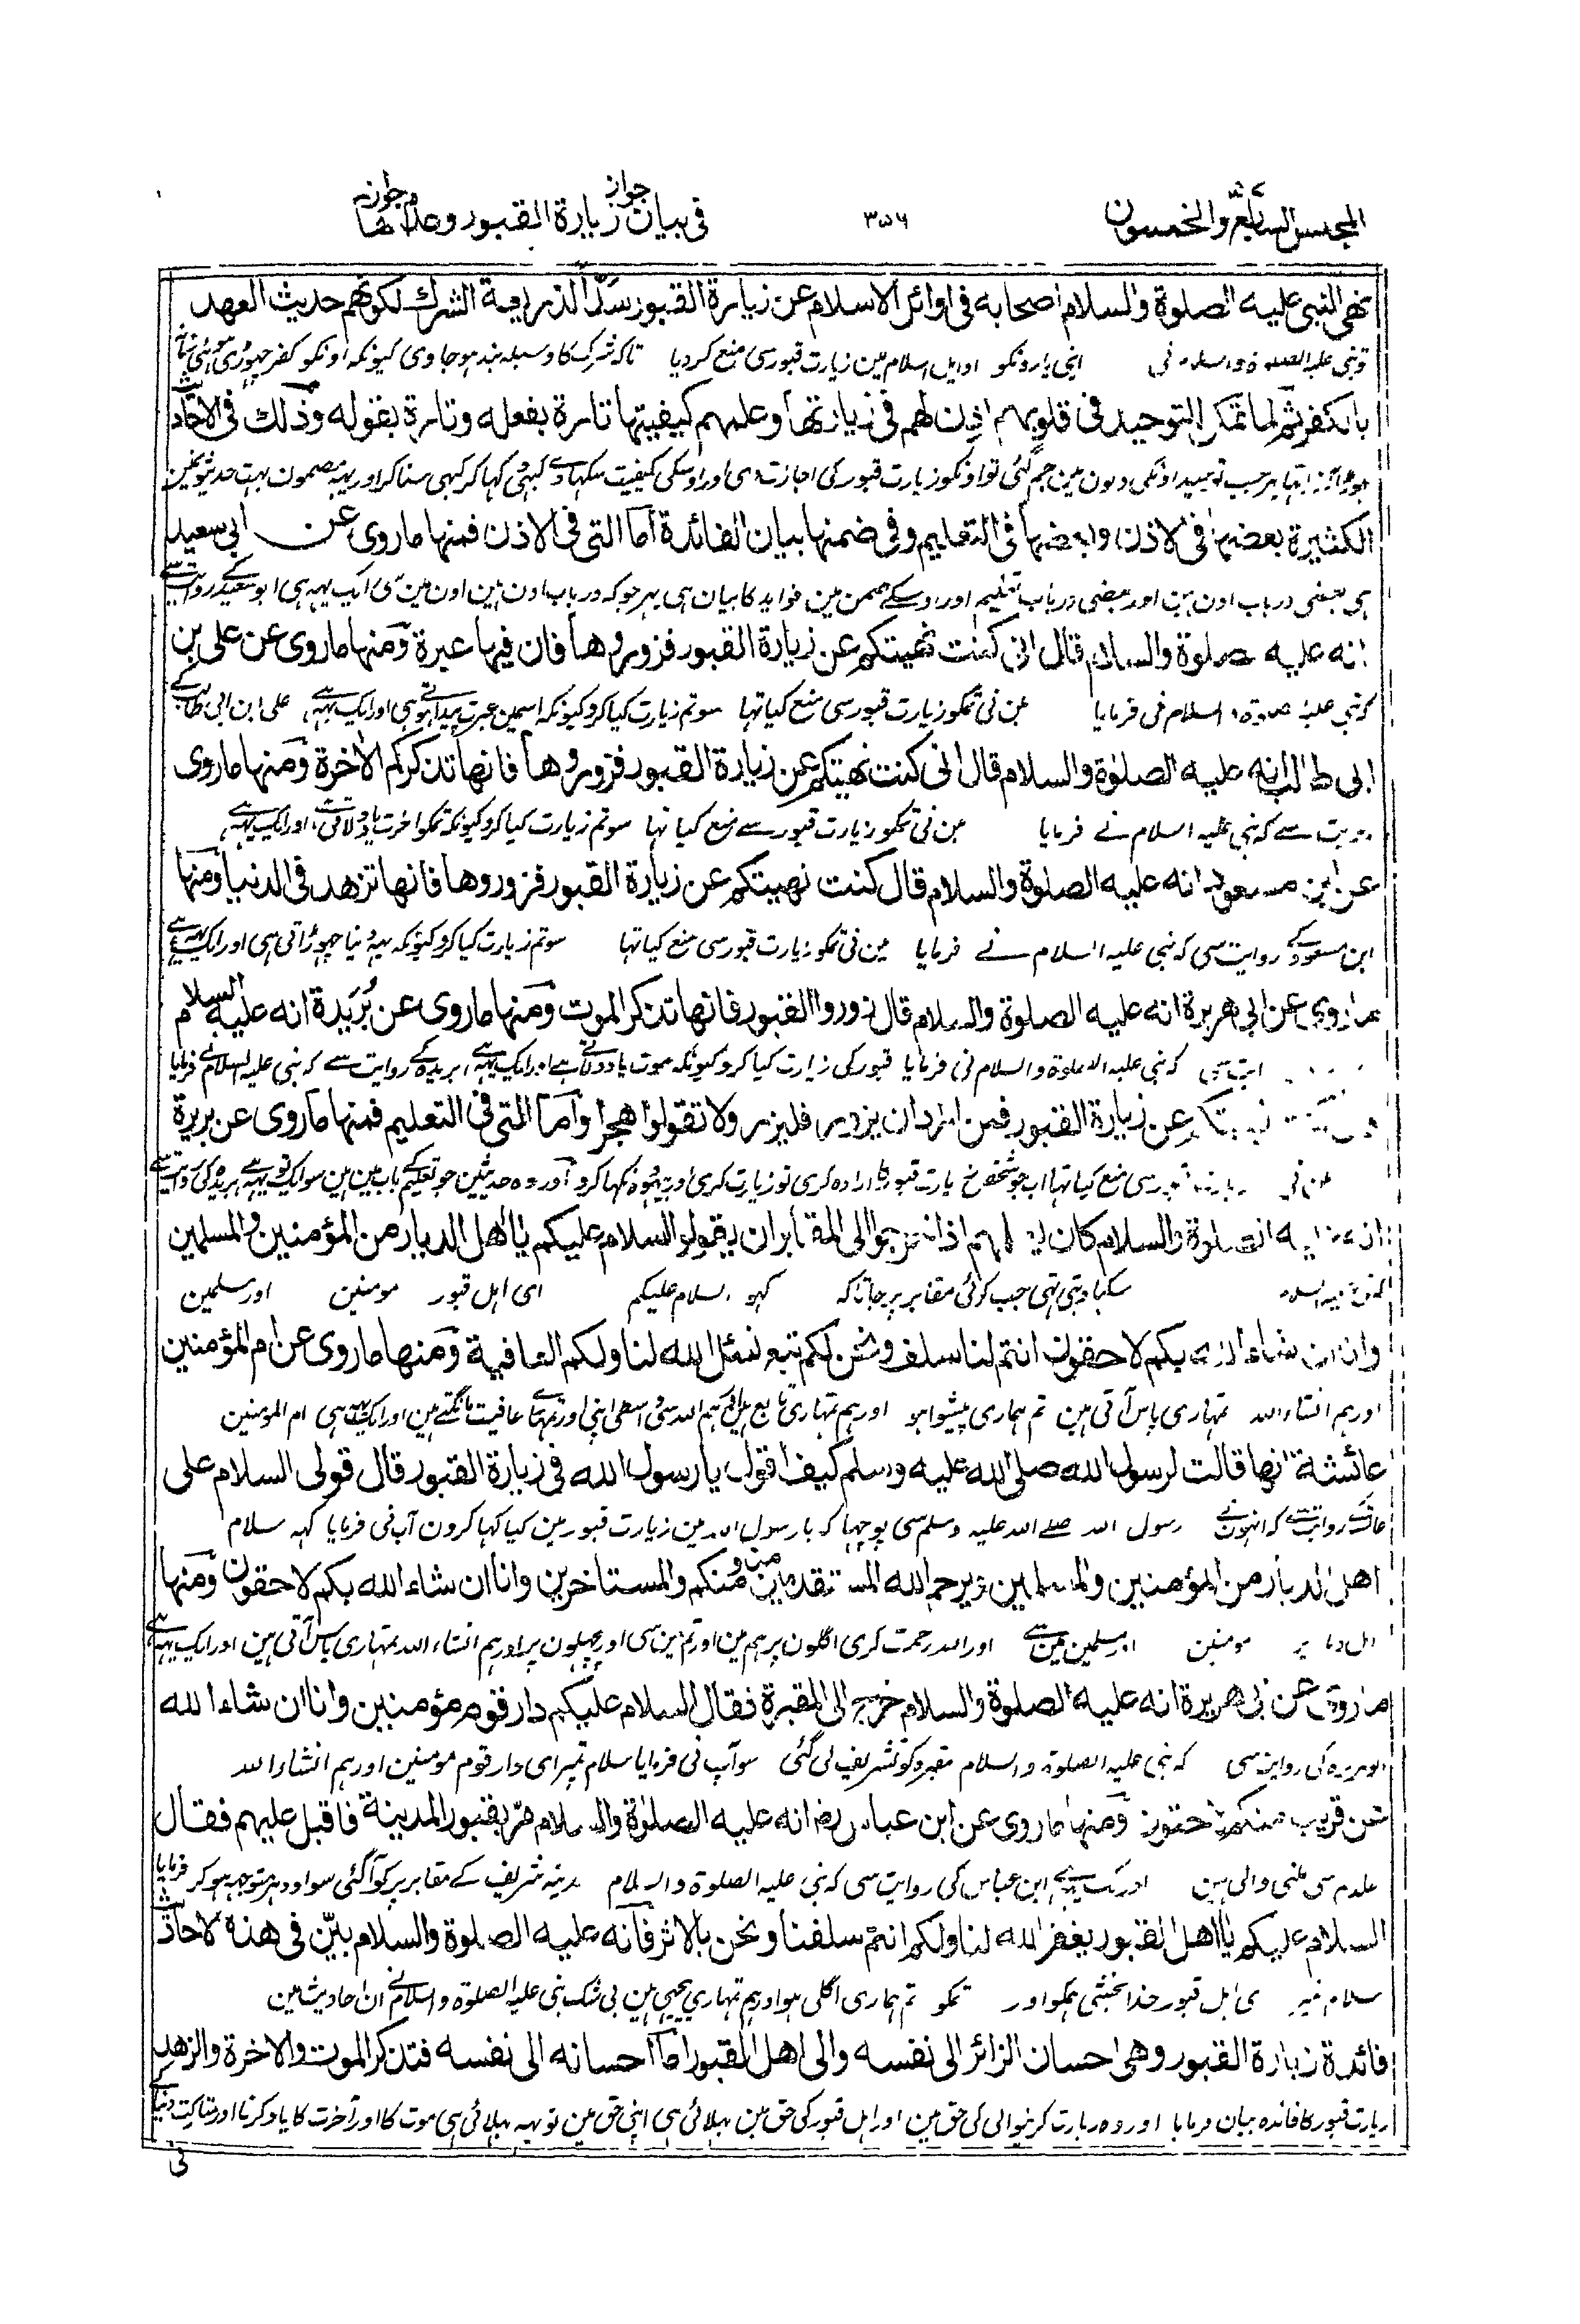 المجلس السابع والخمسون
٣٥٦
فی بیان جواز زیارة القبور وعدم جوازها
نهی النبی علیه الصلوة والسلام اصحابه فی اوائل الاسلام عن زیارة القبور سدًّا لذریعة الشرك لکونهم حدیث العهد
تو نبی علیہ الصلوۃ والسلام نی اپنی یارونکو اوایل اسلام مین زیارت قبورسی منع کردیا تاکہ شرک کا وسیلہ بند ہوجاوی کیونکہ اونکو کفر چہوڑی
بالکفر ثم لما تمکن التوحید فی قلوبهم اذن لهم فی زیارتها وعلمهم کیفیتها تارة بفعله وتارة بقوله وذلك فی الاحادیث
پہر جب توحید اونکی دلون مین جم گئی تو اونکو زیارت قبور کی اجازت دی اور اوسکی کیفیت سکہادی کبہی کہا کر کبہی سنا کر اور یہہ مضمون بہت حدیثونمین
الکثیرة بعضها فی الاذن وبعضها فی التعلیم وفی ضمنها بیان الفائدة اما التی فی الاذن فمنها ماروی عن ابی سعید
ہی بعضی درباب اذن ہین اور بعضی درباب تعلیم اور اوسکے ضمن مین فواید کا بیان ہی پہر جو کہ درباب اذن ہین اون مین سی ایک یہہ ہی ابو سعید کے روایت سے
انه علیه صلوة والسلام قال انی کنت نهیتکم عن زیارة القبور فزوروها فان فیها عبرة ومنها ماروی عن علی بن
کہ نبی علیہ صلوۃ والسلام نی فرمایا مین نی تمکو زیارت قبورسی منع کیا تہا سو تم زیارت کیا کرو کیونکہ اسمین عبرت پیدا ہوتی ہی اور ایک یہہ ہے علی ابن ابی طالب کے
ابی طالب انه علیه الصلوة والسلام قال انی کنت نهیتکم عن زیارة القبور فزوروها فانها تذکرکم الاخرة ومنها ماروی
روایت سے کہ نبی علیہ السلام نے فرمایا مین نی تمکو زیارت قبور سے منع کیا تہا سو تم زیارت کیا کرو کیونکہ تمکو اخرت یاد دلاتی اور ایک یہہ ہے
عن ابن مسعود انه علیه الصلوة والسلام قال کنت نهیتکم عن زیارة القبور فزوروها فانها تزهد فی الدنیا ومنها
ابن مسعود کے روایت سی کہ نبی علیہ السلام نے فرمایا مین نی تمکو زیارت قبورسی منع کیا تہا سو تم زیارت کیا کرو کیونکہ یہہ دنیا چہوڑاتی ہی اور ایک یہہ ہے
ماروی عن ابی هریرة انه علیه الصلوة والسلام قال زوروا القبور فانها تذکر الموت ومنها ماروی عن بُرَیدة انه علیه السلام
کہ نبی علیہ الصلوۃ والسلام نی فرمایا قبور کی زیارت کیا کرو کیونکہ موت یاد دلاتی ہے اور ایک یہہ ہے بریدہ کے روایت سے کہ نبی علیہ السلام نے فرمایا
نهیتکم عن زیارة القبور فمن اراد ان یزور فلیزر ولا تقولوا هجرا واما التی فی التعلیم فمنها ماروی عن بریرة
مین نی زیارت قبورسی منع کیا تہا اب جو شخص زیارت قبور کا ارادہ کری تو زیارت کری اور بیہودہ نکہا کرو اور وہ حدیثین جو تعلیم کے باب مین ہین سو ایک تو یہہ ہے بریدہ کی روایت سے
انه علیه الصلوة والسلام کان یعلمهم اذا خرجوا الی المقابر ان یقولوا السلام علیکم یا اهل الدیار من المؤمنین والمسلمین
سکہا دیتی تہی جب کوئی مقابر پر جاتا کہ کہو السلام علیکم ای اہل قبور مومنین اور مسلمین
وانا ان شاء الله بکم لاحقون انتم لنا سلف ونحن لکم تبع نسئل الله لنا ولکم العافیة ومنها ماروی عن ام المؤمنین
اور ہم انشاء اللہ تمہاری پاس آتی ہین تم ہماری پیشوا ہو اور ہم تمہاری تابع ہین ہم اللہ سی واسطی اپنی اور تمہاری عافیت مانگتے ہین اور ایک یہہ ہی ام المومنین
عائشة انها قالت لرسول الله صلی الله علیه وسلم کیف اقول یا رسول الله فی زیارة القبور قال قولی السلام علی
عائشہ کے روایت سے کہ انہون نے رسول اللہ صلے اللہ علیہ وسلم سی پوچہا کہ یا رسول اللہ مین زیارت قبور مین کیا کہا کرون آپ نی فرمایا کہہ سلام
اهل الدیار من المؤمنین والمسلمین ویرحم الله المستقدمین منا ومنکم والمستاخرین وانا ان شاء الله بکم لاحقون ومنها
اہل دیار پر مومنین اور مسلمین مین سے اور اللہ رحمت کری اگلون پر ہم مین اور تم مین سی اور پچہلون پر اور ہم انشاء اللہ تمہاری پاس آتی ہین اور ایک یہہ ہے
ماروی عن ابی هریرة انه علیه الصلوة والسلام خرج الی المقبرة فقال السلام علیکم دار قوم مؤمنین وانا ان شاء الله
ابو ہریرہ کی روایت سی کہ نبی علیہ الصلوۃ والسلام مقبرہ کو تشریف لی گئی سو آپ نی فرمایا سلام تمپر ای دار قوم مومنین اور ہم انشاء اللہ
عن قریب منکم لاحقون ومنها ماروی عن ابن عباس رض انه علیه الصلوة والسلام مرّ بقبور المدینة فاقبل علیهم فقال
جلد تم سی ملنی والی ہین اور ایک یہہ ہے ابن عباس کی روایت سی کہ نبی علیہ الصلوۃ والسلام مدینہ شریف کے مقابر پر کو آگئی سو اودہر متوجہ ہوکر فرمایا
السلام علیکم یا اهل القبور یغفر الله لنا ولکم انتم سلفنا ونحن بالاثر فانه علیه الصلوة والسلام بیّن فی هذه الاحادیث
سلام تمپر ای اہل قبور خدا بخشی ہمکو اور تمکو تم ہماری اگلی ہو اور ہم تمہاری پیچہی ہین بی شک نبی علیہ الصلوۃ والسلام نے ان احادیث مین
فائدة زیارة القبور وهی احسان الزائر الی نفسه والی اهل القبور اما احسانه الی نفسه فتذکر الموت والاخرة والزهد
زیارت قبور کا فائدہ بیان فرمایا اور وہ زیارت کرنیوالی کی حق مین اور اہل قبور کی حق مین بہلائی ہی اپنی حق مین تو یہہ بہلائی ہی موت کا اور آخرت کا یاد کرنا اور
فی